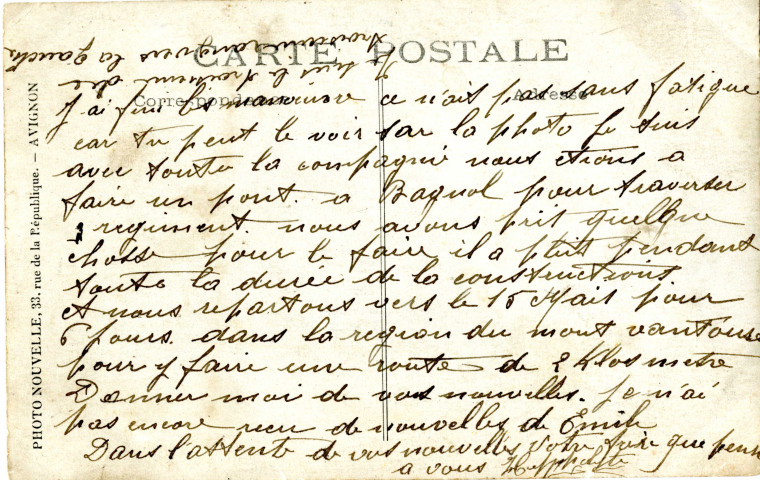 CARTE POSTALE
Correspondance
Adresse
PHOTO NOUVELLE, 33, rue de la République. — AVIGNON
J'ai fini les manoeuvre ce n'ait pas sans fatigue
car tu peut le voir sur la photo Je suis
avec toute la compagnie nous etions a
faire un pont a Bagnol pour traverser
1 regiment nous avons prit quelque
chosse pour le faire il a pluit pendant
toute la durée de la constructions
et nous repartons vers le 15 Mait pour
6 jours dans la region du mont vantouse
pour y faire une route de 2 Klos metre
Donner moi de vos nouvelles. Je n'ai
pas encore recu de nouvelles de Emile
Dans l'attente de vos nouvelles Votre frère que pense
a vous
Je suis le troisieme des
troisieme rang vers la gauche